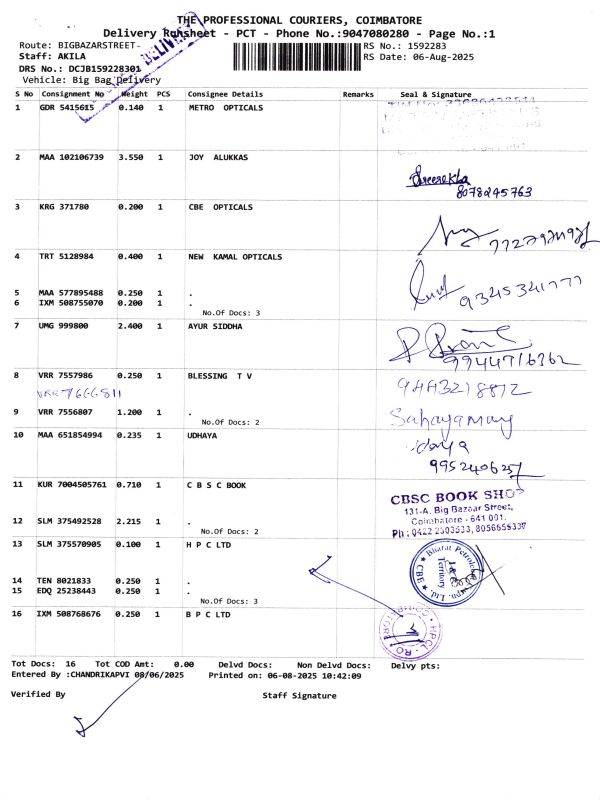 THE PROFESSIONAL COURIERS, COIMBATORE
Delivery Runsheet - PCT - Phone No.:9047080280 - Page No.:1
Route: BIGBAZARSTREET- RS No.: 1592283
Staff: AKILA RS Date: 06-Aug-2025
DRS No.: DCJB159228301
Vehicle: Big Bag Delivery
DELIVERY
S No Consignment No Weight PCS Consignee Details Remarks Seal & Signature
1 GDR 5415615 0.140 1 METRO OPTICALS
2 MAA 102106739 3.550 1 JOY ALUKKAS
Sreerekha
8078245763
3 KRG 371780 0.200 1 CBE OPTICALS
4 TRT 5128984 0.400 1 NEW KAMAL OPTICALS
9345341777
5 MAA 577895488 0.250 1 .
6 IXM 508755070 0.200 1 .
No.Of Docs: 3
7 UMG 999800 2.400 1 AYUR SIDDHA
9944716362
8 VRR 7557986 0.250 1 BLESSING T V
VRR 7666811
9443218872
9 VRR 7556807 1.200 1 .
Sahayamary
No.Of Docs: 2
10 MAA 651854994 0.235 1 UDHAYA
udaya
9952406257
11 KUR 7004505761 0.710 1 C B S C BOOK
CBSC BOOK SHOP
131-A, Big Bazaar Street,
Coimbatore - 641 001.
Ph : 0422 2303533, 8056655337
12 SLM 375492528 2.215 1 .
No.Of Docs: 2
13 SLM 375570905 0.100 1 H P C LTD
Bharat Petroleum Corpn. Ltd. CBE
Territory
14 TEN 8021833 0.250 1 .
15 EDQ 25238443 0.250 1 .
No.Of Docs: 3
16 IXM 508768676 0.250 1 B P C LTD
HPCL - RO
COIMBATORE
Tot Docs: 16 Tot COD Amt: 0.00 Delvd Docs: Non Delvd Docs: Delvy pts:
Entered By :CHANDRIKAPVI 08/06/2025 Printed on: 06-08-2025 10:42:09
Verified By Staff Signature